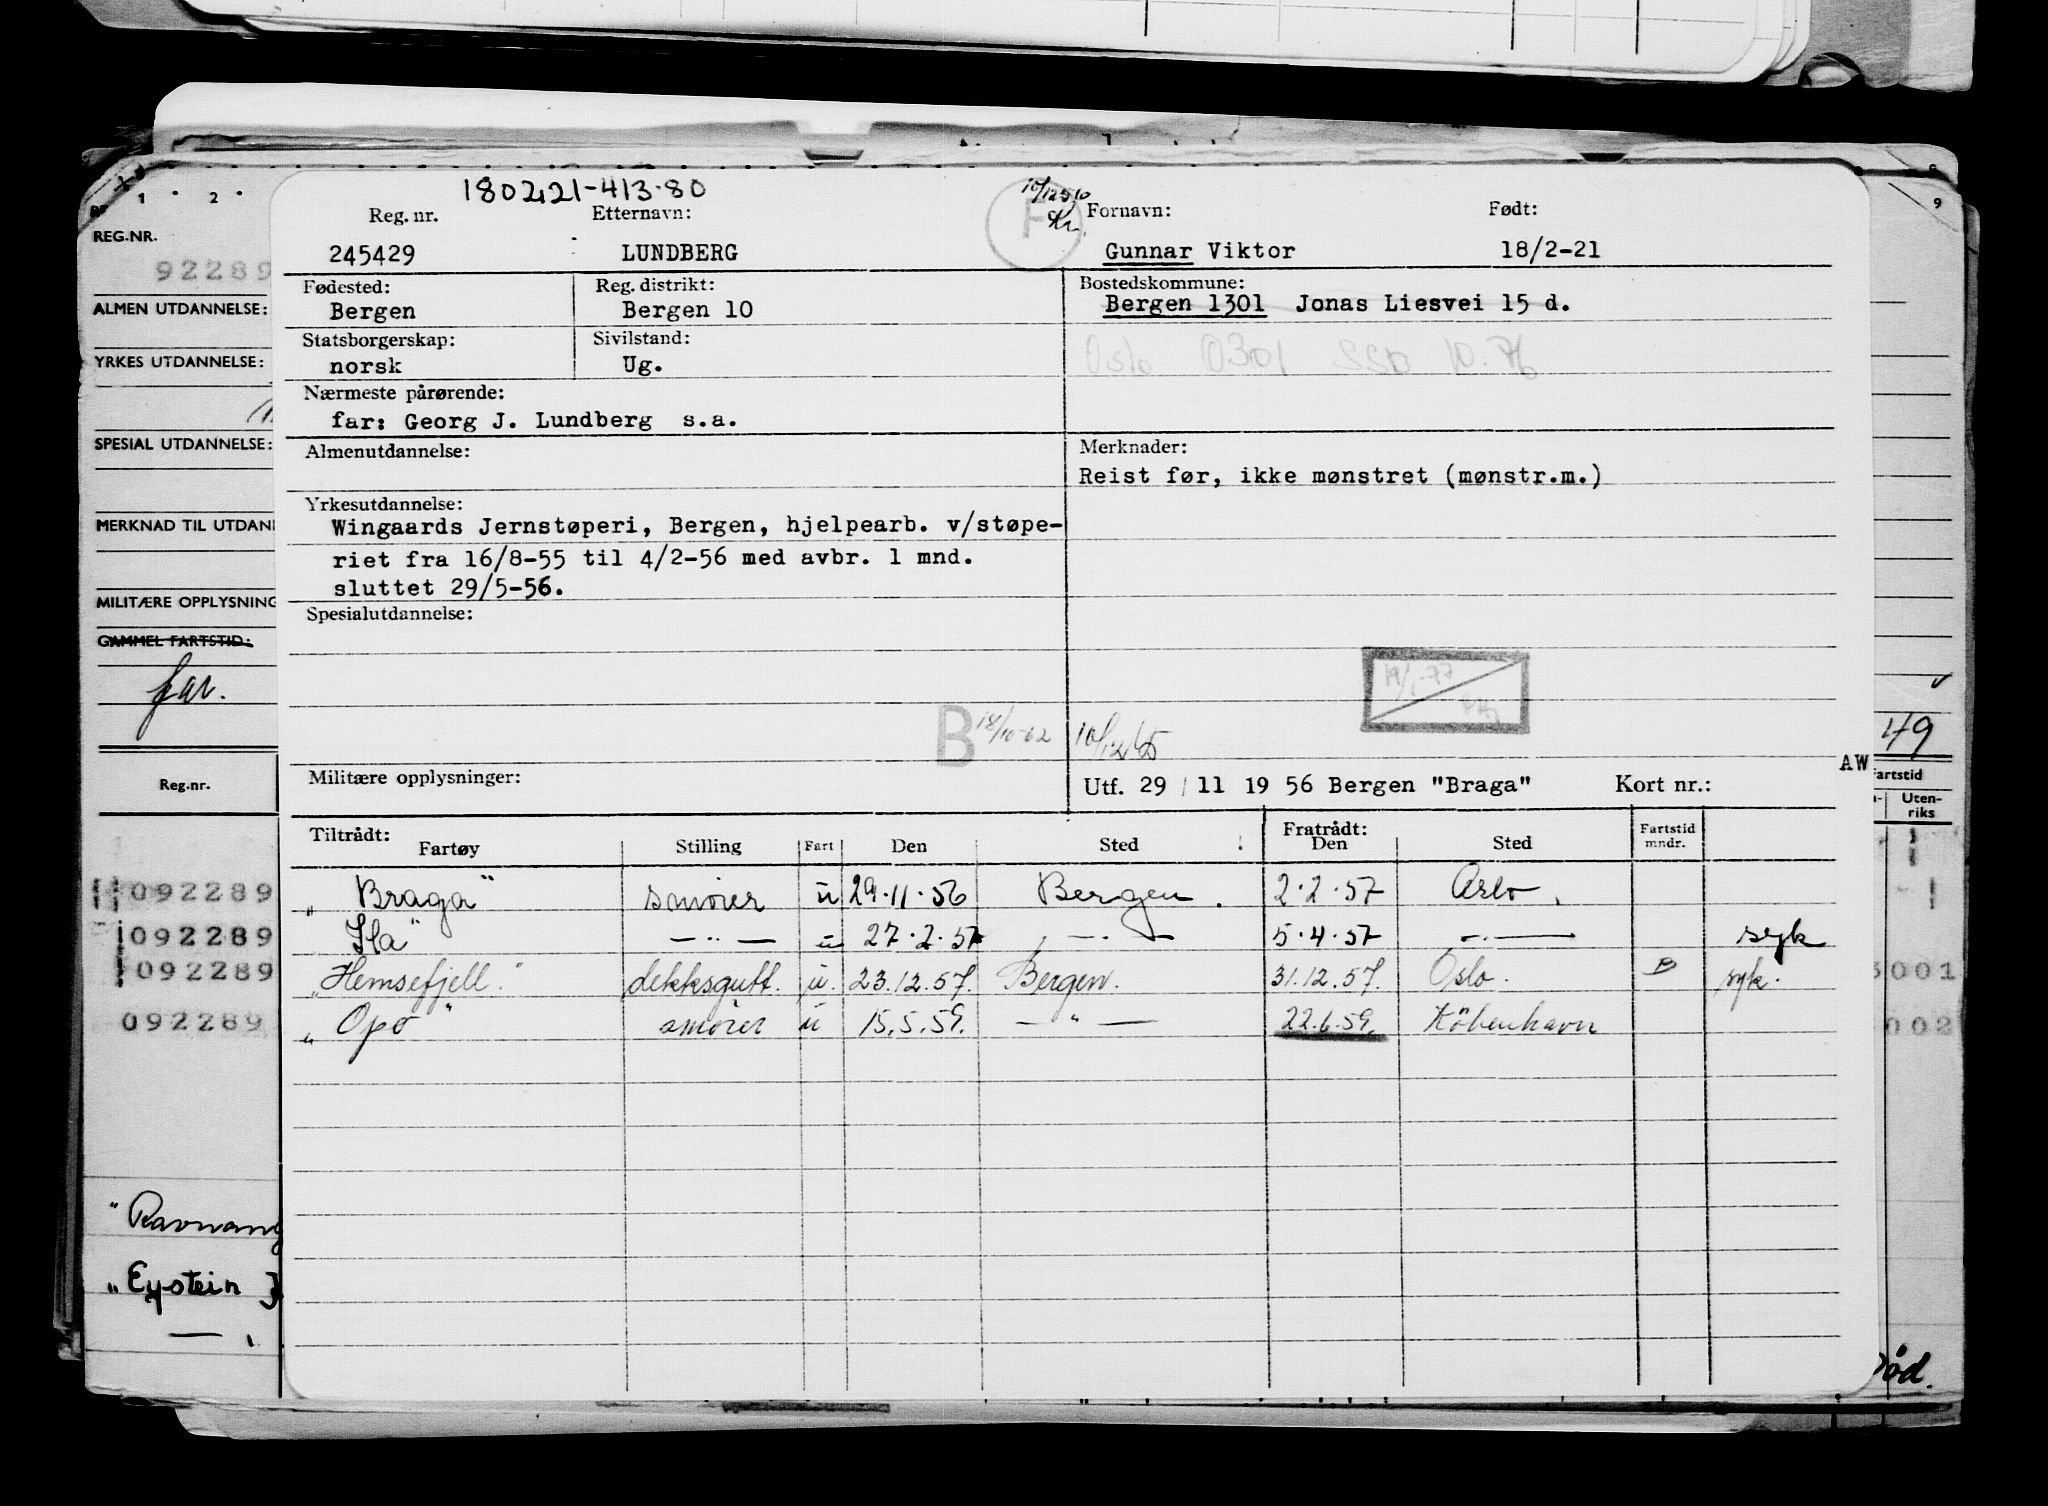 180221-413.80
Reg. nr. Etternavn: Fornavn: Født:
245429 LUNDBERG Gunnar Viktor 18/2-21
Fødested: Reg. distrikt: Bostedskommune:
Bergen Bergen 10 Bergen 1301 Jonas Liesvei 15 d.
Statsborgerskap: Sivilstand:
norsk Ug. Oslo 0301
Nærmeste pårørende:
far: Georg J. Lundberg s.a.
Almenutdannelse: Merknader:
Reist før, ikke mønstret (mønstr.m.)
Yrkesutdannelse:
Wingaards Jernstøperi, Bergen, hjelpearb. v/støpe-
riet fra 16/8-55 til 4/2-56 med avbr. 1 mnd.
sluttet 29/5-56.
Spesialutdannelse:
B 18/10-62 10/12 65
AW
Militære opplysninger: Utf. 29/11 19 56 Bergen "Braga" Kort nr.:
Tiltrådt: Fratrådt: Fartstid
Fartøy Stilling Fart Den Sted Den Sted mndr.
"Braga" smører u 29.11.56 Bergen. 2.2.57 Oslo.
Ila" — " — u 27.2.57 — " — 5.4.57 — " — syk
"Hemsefjell." dekksgutt. u. 23.12.57. Bergen. 31.12.57. Oslo. B syk.
"Opo" smører u 15.5.59. — " — 22.6.59. København
1 2
REG.NR.
92289
ALMEN UTDANNELSE:
YRKES UTDANNELSE:
SPESIAL UTDANNELSE:
MERKNAD TIL UTDAN
MILITÆRE OPPLYSNING
GAMMEL FARTSTID:
far.
Reg.nr.
092289
092289
092289
092289
"Ravnang
"Eystein
9
49
artstid
Uten-
riks
001
002
ød.